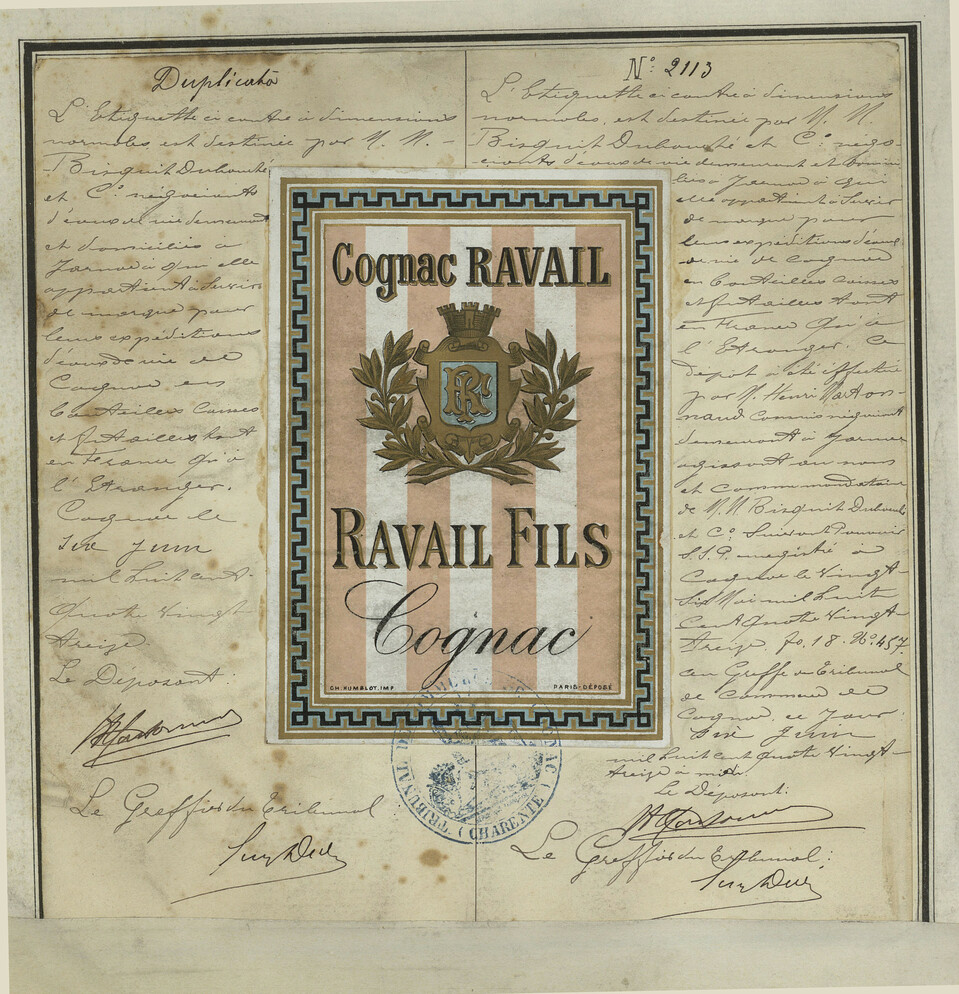 Duplicata
L'Etiquette ci contre à dimensions
normales est destinée par M. M. -
Bisquit Dubouché
et Cie négociants
d'eaux de vie demeurant
et domiciliés à
Jarnac à qui elle
appartient à servir
de marque pour
leurs expéditions
d'eaux de vie de
Cognac en
bouteilles caisses
et futailles tant
en France qu'à
l'Etranger.
Cognac le
juin
mil huit cent
quatre vingt
treize.
Le Déposant:
Le Greffier du Tribunal
N° 2113
L'Etiquette ci contre à dimensions
normales, est destinée par M. M.
Bisquit Dubouché et Cie négo-
ciants d'eaux de vie demeurant et domici-
liés à Jarnac à qui
elle appartient à servir
de marque pour
leurs expéditions d'eaux
de vie de Cognac
en bouteilles caisses
et futailles tant
en France qu'à
l'Etranger. Ce
dépôt a été effectué
par M. Henri
commis négociant
demeurant à Jarnac
agissant au nom
et comme mandataire
de M. M Bisquit Dubouché
et Cie Suivant Pouvoir
S.S.P. enregistré à
Cognac le vingt-
six Mai mil huit
cent quatre vingt
treize. fo. 18. No. 457.
au Greffe du Tribunal
de Commerce de
Cognac, ce jour
juin
mil huit cent quatre vingt
treize à midi.
Le Déposant:
Le Greffier du Tribunal:
Cognac RAVAIL
RAVAIL FILS
Cognac
CH. HUMBLOT. IMP
PARIS-DÉPOSÉ
TRIBUNAL DE COGNAC
(CHARENTE)